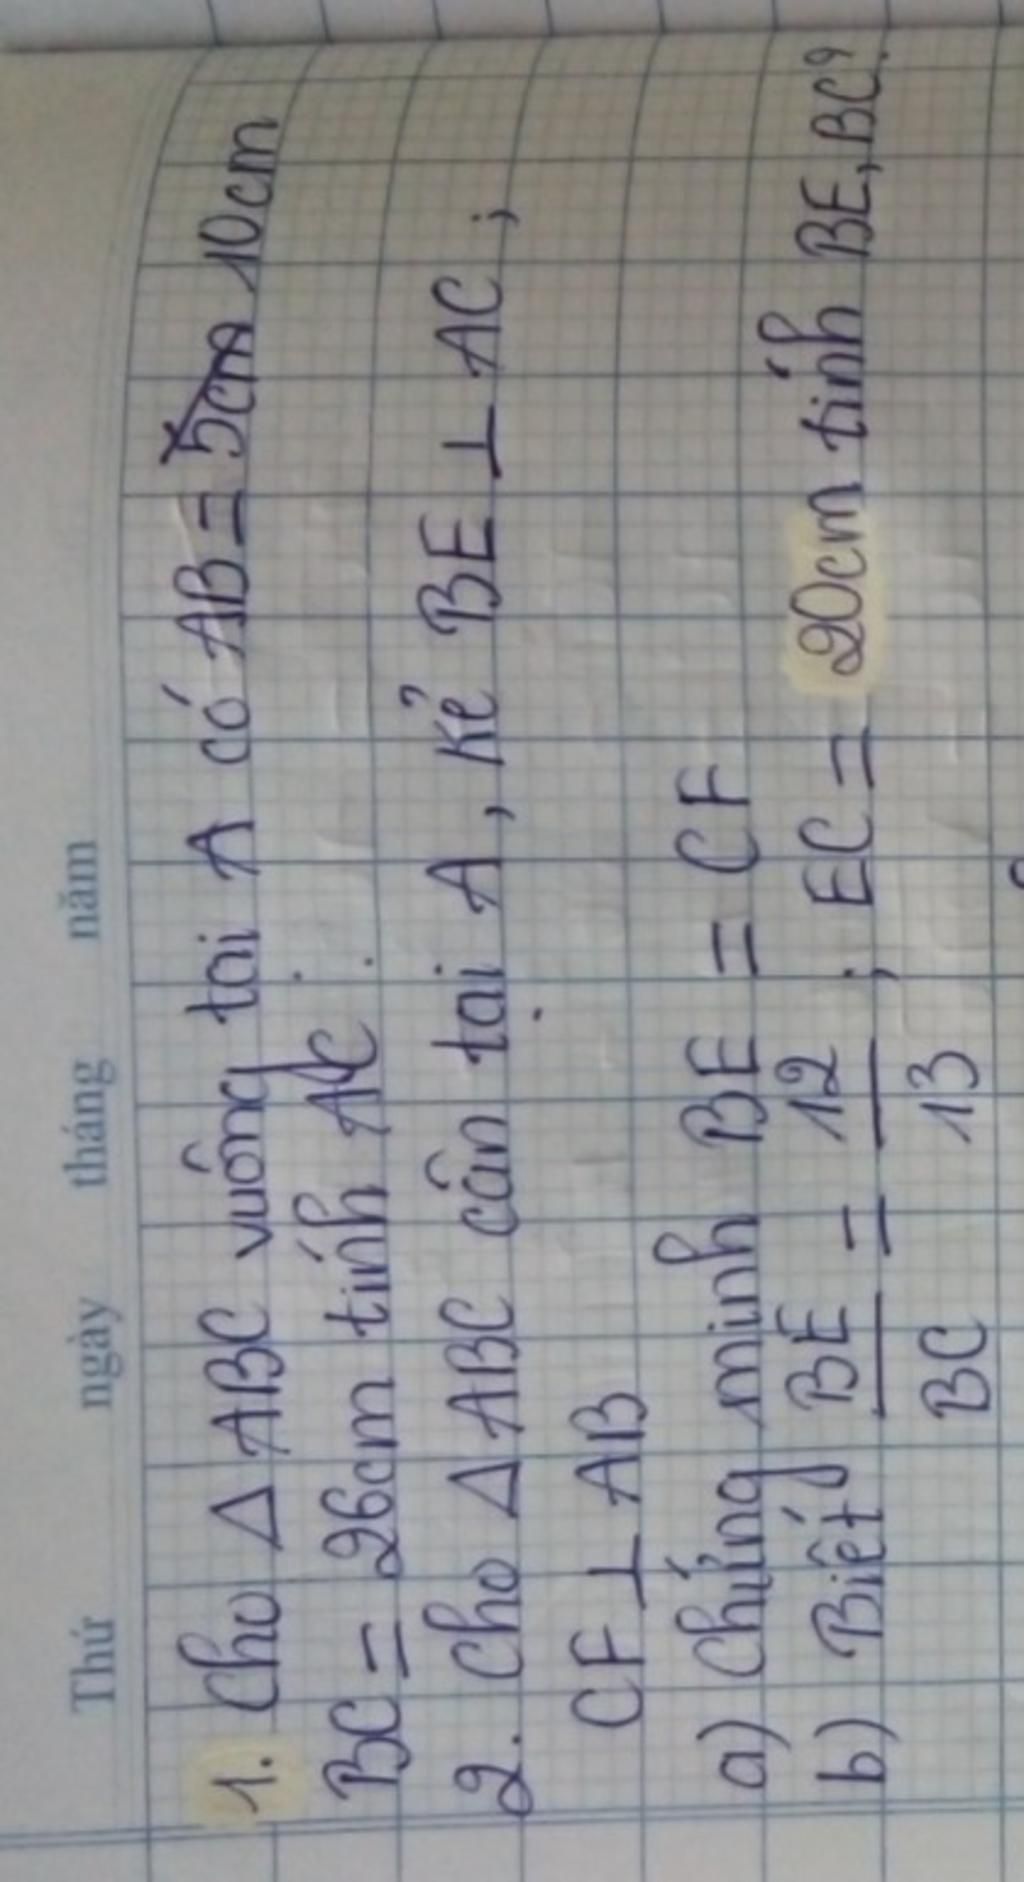 Thứ ngày tháng năm
1. Cho Δ ABC vuông tại A có AB = 5cm 10cm
BC = 26cm tính AC.
2. Cho Δ ABC cân tại A, kẻ BE ⊥ AC ;
CF ⊥ AB
a) Chứng minh BE = CF
b) Biết BE/BC = 12/13 ; EC = 20cm tính BE, BC?